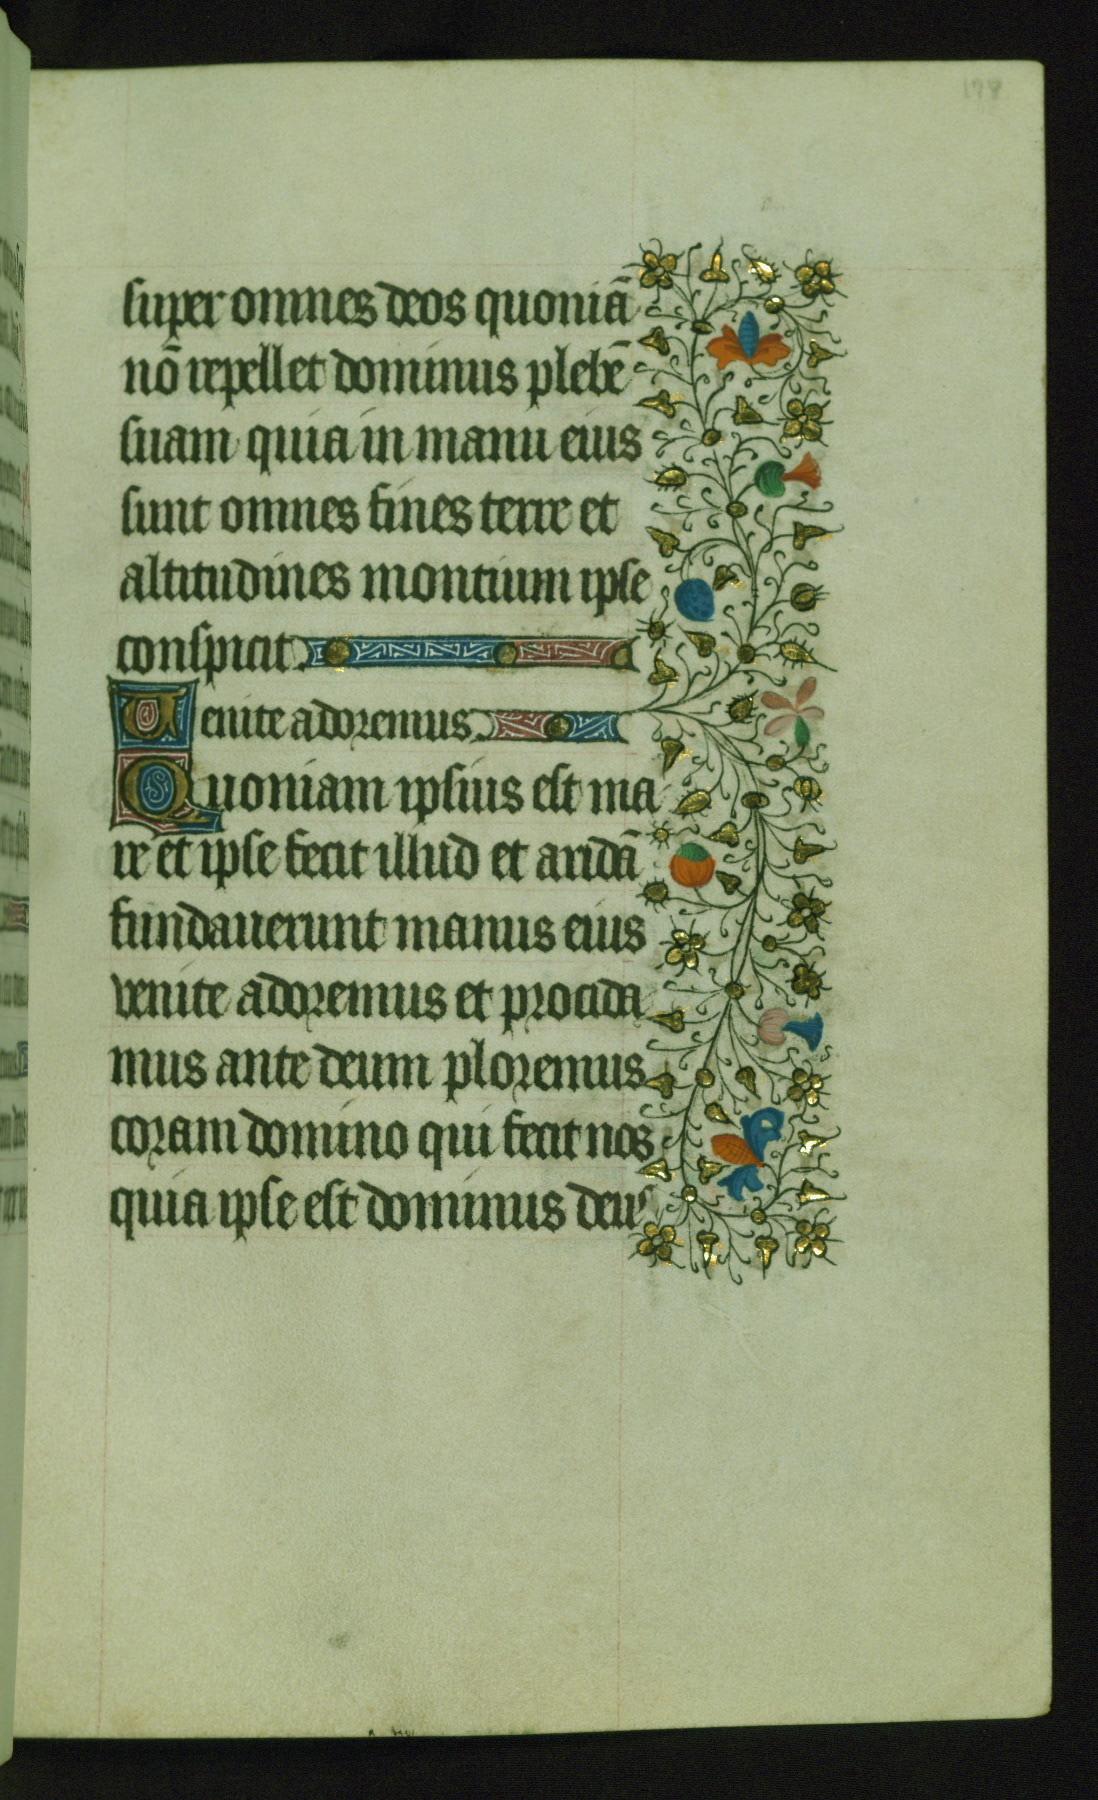 178
super omnes deos quoniā
nō repellet dominus plebē
suam quia in manu eius
sunt omnes fines terre et
altitudines montium ipse
conspicit
Uenite adoremus
Quoniam ipsius est ma
re et ipse fecit illud et aridā
fundauerunt manus eius
venite adoremus et procida
mus ante deum ploremus
coram domino qui fecit nos
quia ipse est dominus deus